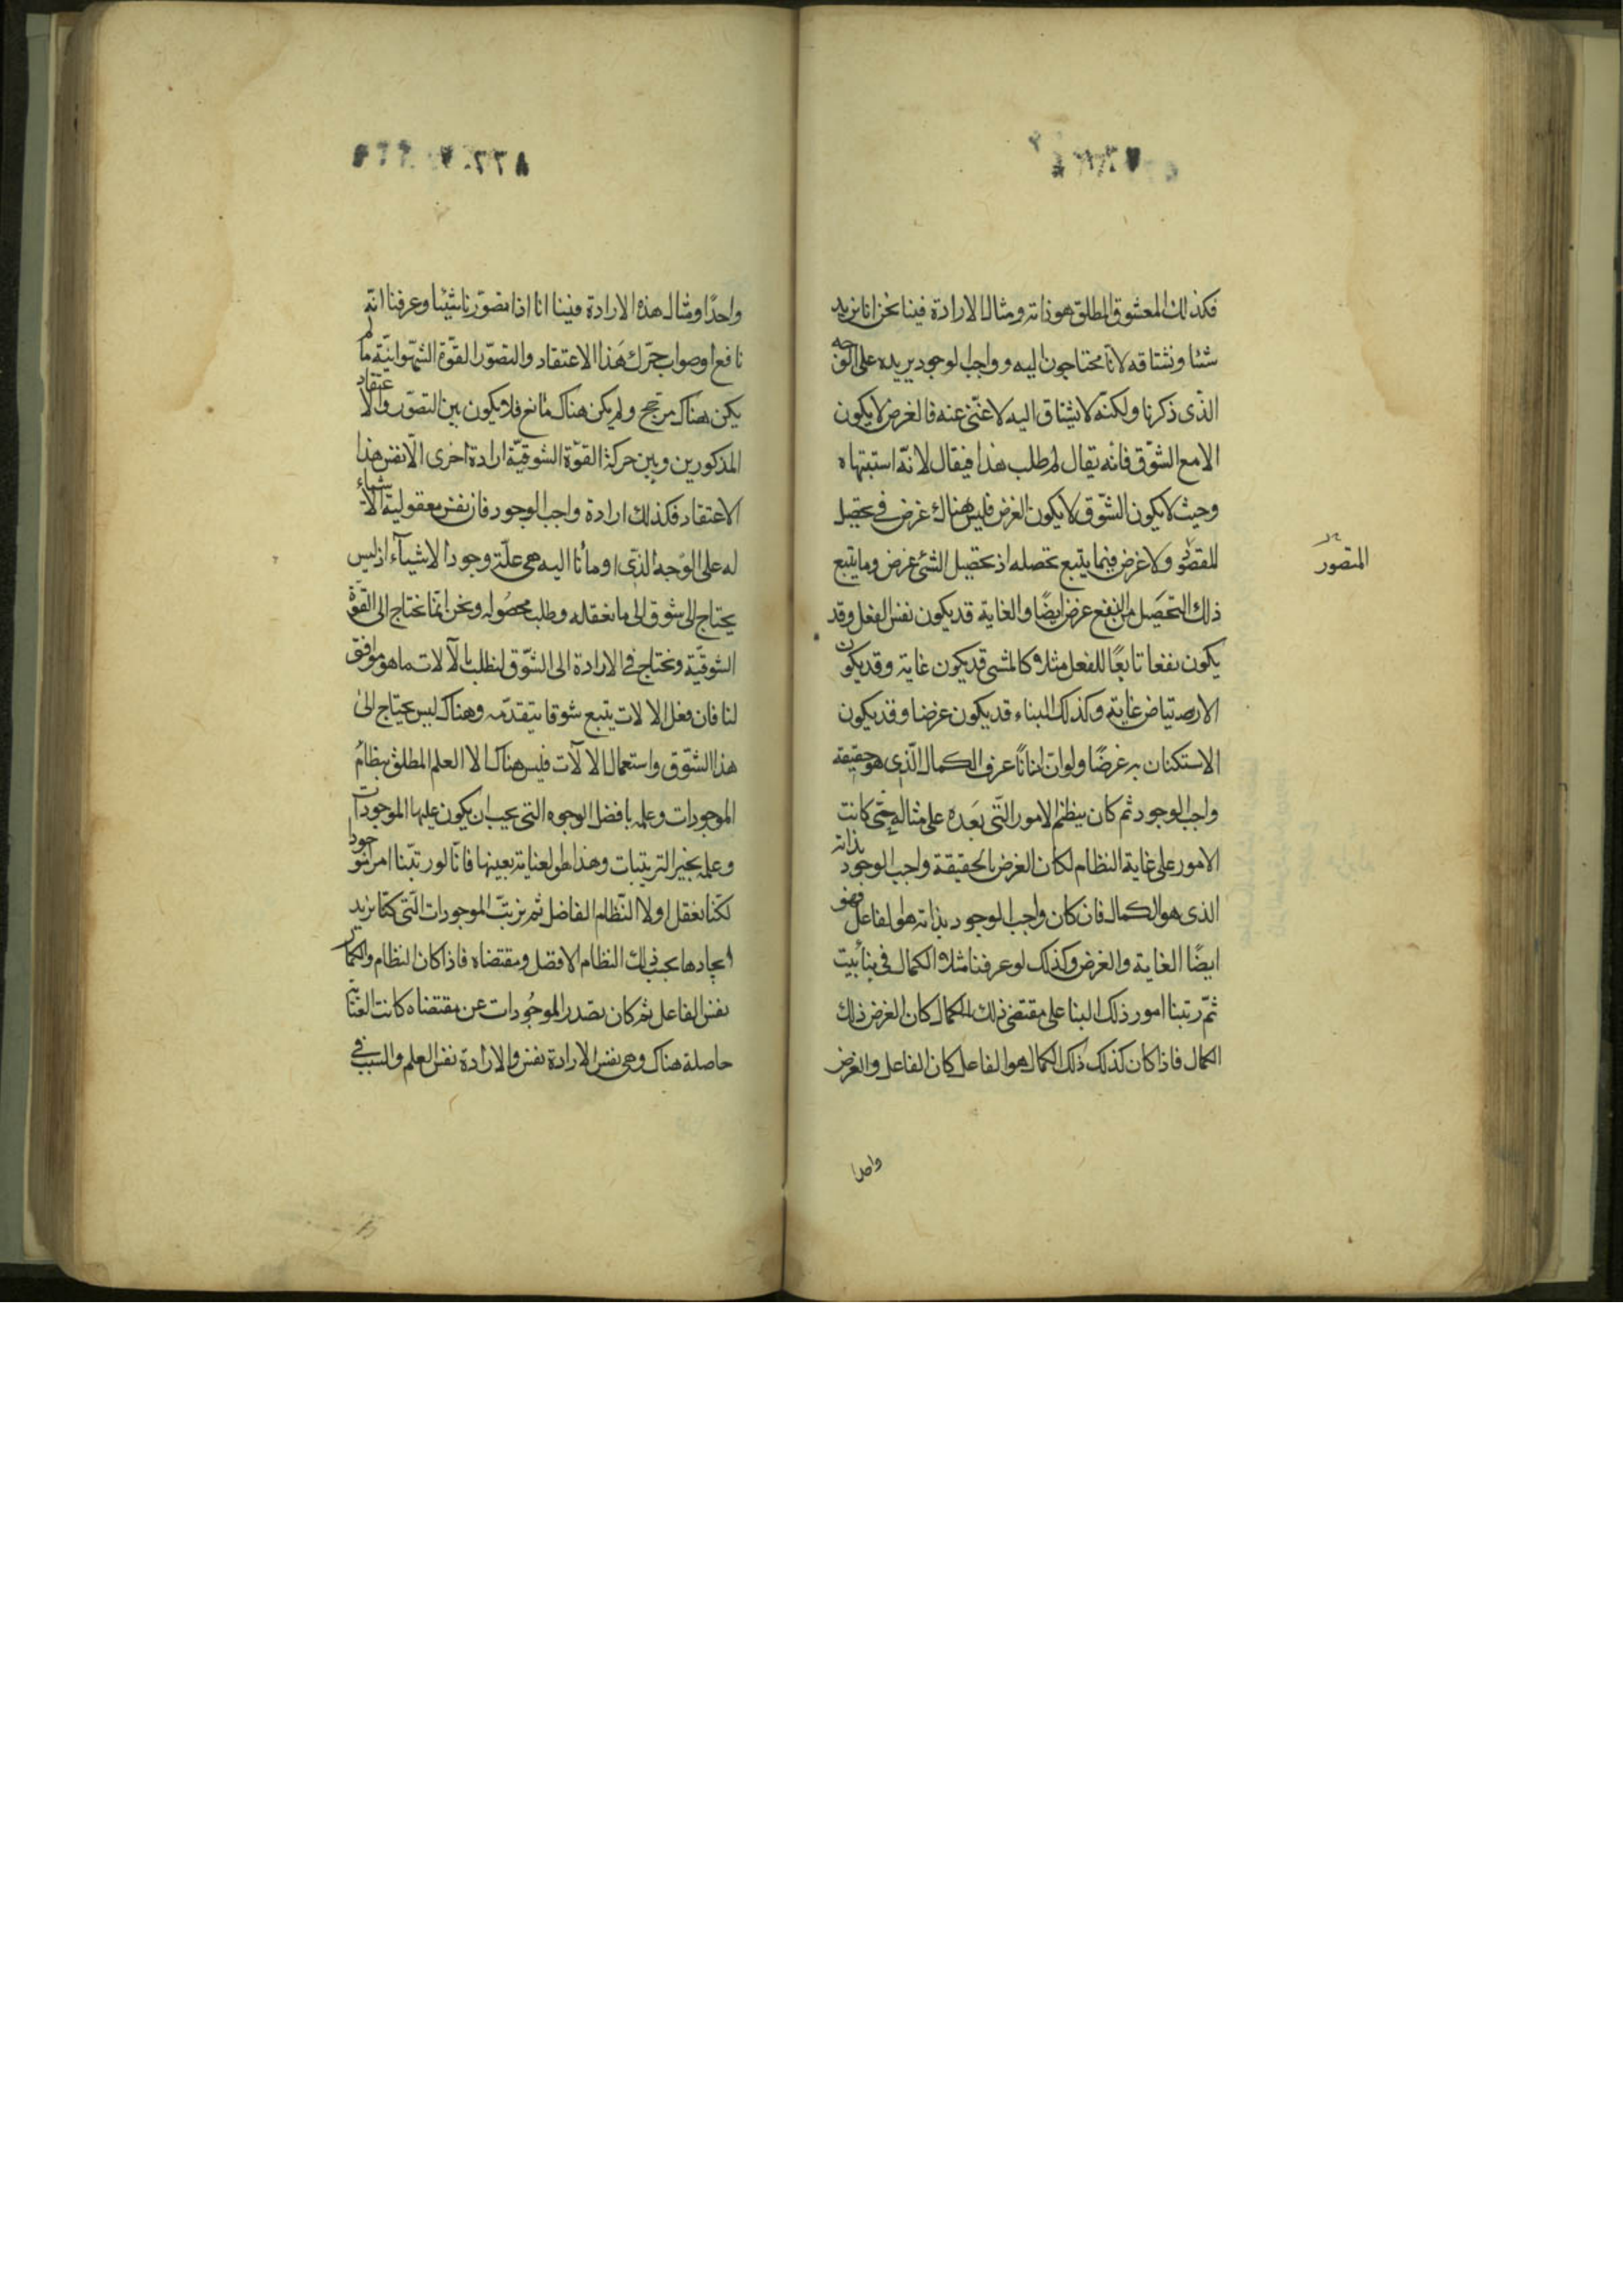 فكذلك المعشوق المطلق هو ذاته ومثال الارادة فينا نحن انا نريد
شئا ونشتاقه لانا محتاجون اليه وواجب الوجود يريده على الوجه
الذى ذكرنا ولكنه لا يشتاق اليه لا غنى عنه فالغرض لا يكون
الا مع الشوق فانه يقال لم طلب هذا فيقال لانه اشتهاه
وحيث لا يكون الشوق لا يكون الغرض فليس هناك غرض فى تحصيل
المقصود ولا غرض فيما يتبع تحصله اذ تحصيل الشئ غرض وما يتبع
المتصور
ذلك التحصيل من النفع غرض ايضًا والغاية قد يكون نفس الفعل وقد
يكون نفعا تابعًا للفعل مثلا كالمشى قد يكون غاية وقد يكون
الارتياض غايته وكذلك البناء قد يكون غرضا وقد يكون
الاستكنان به غرضًا ولو ان انسانًا عرف الكمال الذى هو حقيقة
واجب الوجود ثم كان ينظم الامور التى بعده على مثاله حتى كانت
الامور على غاية النظام لكان الغرض بالحقيقة واجب الوجود بذاته
الذى هو الكمال فان كان واجب الوجود بذاته هو الفاعل فهو
ايضًا الغاية والغرض وكذلك لو عرفنا مثلا الكمال فى بناء بيت
ثم رتبنا امور ذلك البنا على مقتضى ذلك الكمال كان الغرض ذلك
الكمال فاذا كان كذلك ذلك الكمال هو الفاعل كان الفاعل والغرض
واحدا
واحدًا ومثال هذه الارادة فينا انا اذا تصوّرنا شيئا وعرفنا انه
نافع او صواب حرّك هذا الاعتقاد والتصوّر القوّة الشهوانيّة ما لم
يكن هناك مرجح ولم يكن هناك مانع فلا يكون بين التصوّر والاعتقاد
المذكورين وبين حركة القوّة الشوقيّة ارادة اخرى الّا نفس هذا
الاعتقاد فكذلك ارادة واجب الوجود فان نفس معقولية الاشياء
له على الوجه الذى اومأنا اليه هى علّة وجود الاشيآء اذ ليس
يحتاج الى شوق الى ما نعقله وطلب محصوله ونحن انما نحتاج الى القوّة
الشوقيّة ونحتاج فى الارادة الى الشوّق لنطلب بالآلات ما هو موافق
لنا فان فعل الالات يتبع شوقا يتقدّمه وهناك ليس يحتاج الى
هذا الشوّق واستعمال الالآت فليس هناك الا العلم المطلق بنظام
الموجودات وعلمه بافضل الوجوه التى يجب ان يكون عليها الموجودات
وعلمه بخير الترتيبات وهذا هو العناية بعينها فانّا لو رتّبنا امرا موجودا
لكنّا نعقل اولا النّظام الفاضل ثم نرتبّ الموجودات التى كنّا نريد
ايجادها بحسب ذلك النظام الافضل ومقتضاه فاذا كان النظام والكمال
نفس الفاعل ثم كان تصدر الموجودات عن مقتضاه كانت العناية
حاصلة هناك وهى نفس الارادة نفس والارادة نفس العلم والسبب فى